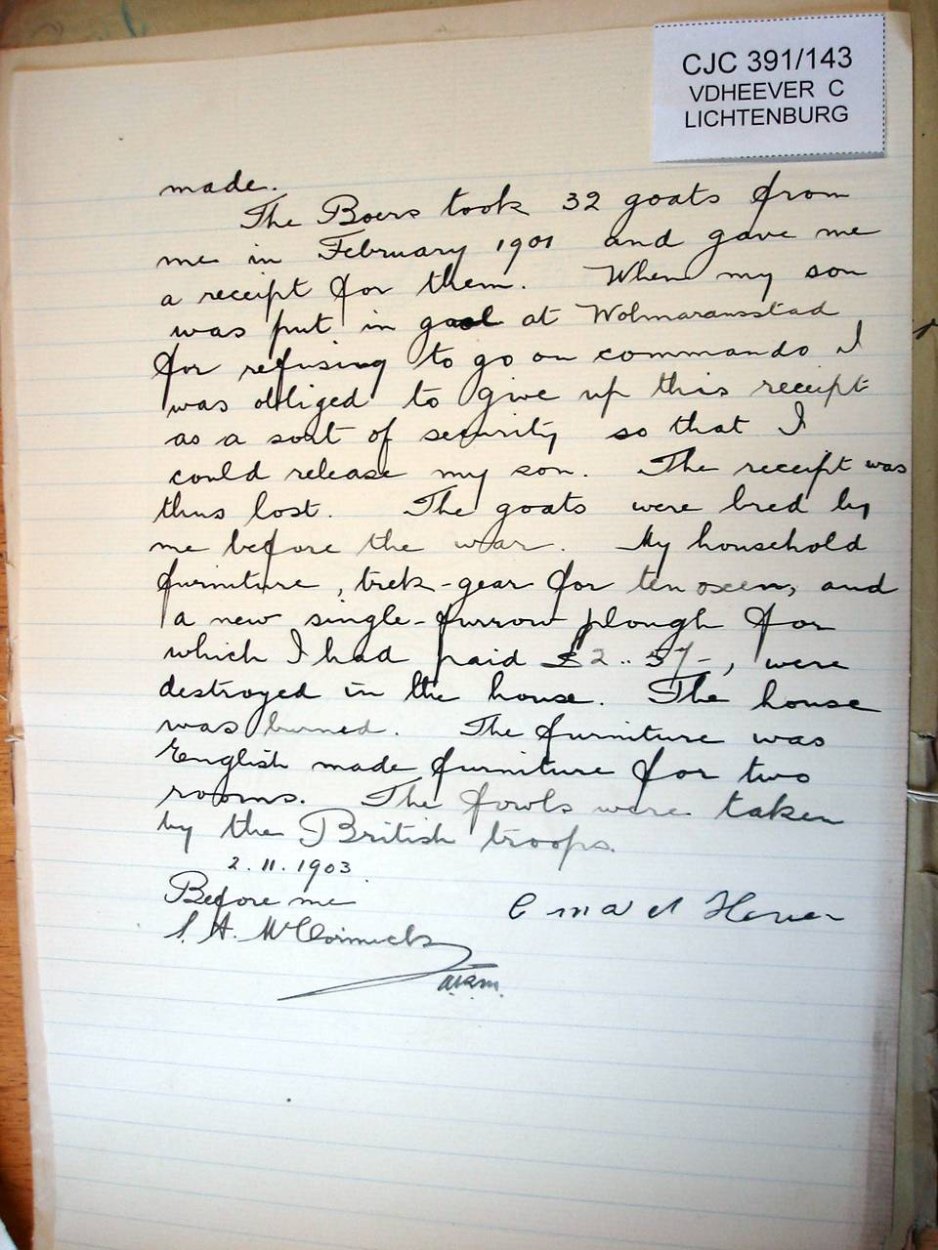 CJC 391/143
VDHEEVER C
LICHTENBURG
made.
The Boers took 32 goats from
me in February 1901 and gave me
a receipt for them. When my son
was put in gaol at Wolmaransstad
for refusing to go on commando I
was obliged to give up this receipt
as a sort of security so that I
could release my son. The receipt was
thus lost. The goats were bred by
me before the war. My household
furniture, trek-gear for ten oxen, and
a new single-furrow plough for
which I had paid £2..57-, were
destroyed in the house. The house
was burned. The furniture was
English made furniture for two
rooms. The fowls were taken
by the British troops.
2.11.1903.
Before me
S. A. McCormick